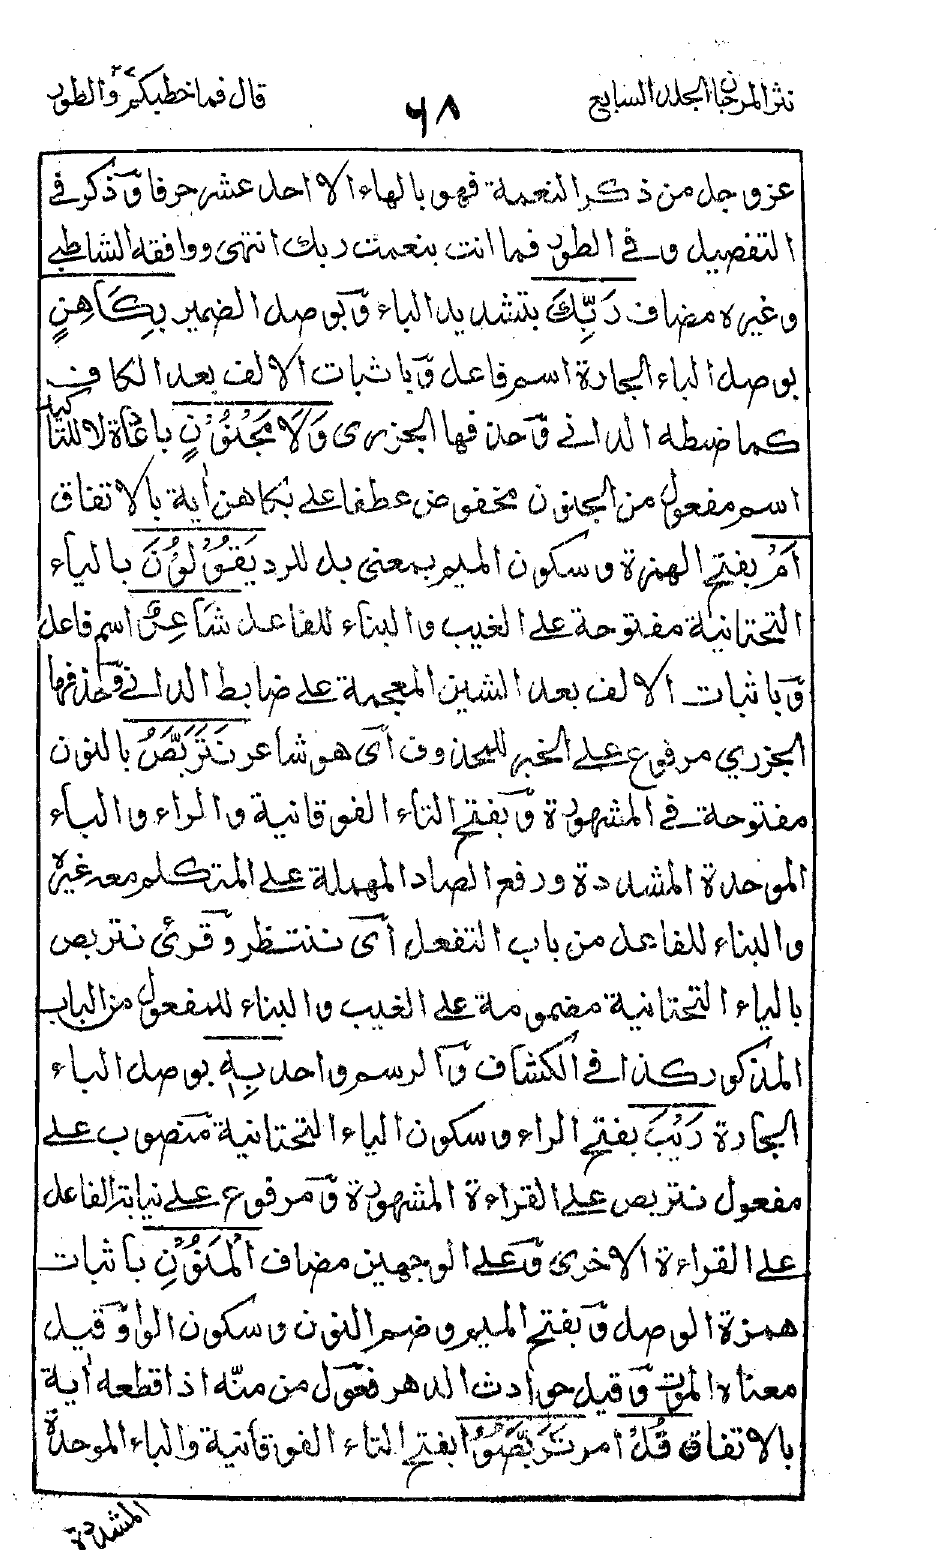 نثر المرجان الجلد السابع
٦٨
قال فما خطبكم ٢٧ والطور
عز وجل من ذكر النعمة فهو بالهاء الا احد عشر حرفا وذكر في
التفصيل وفي الطور فما انت بنعمت ربك انتهى ووافقه الشاطبي
وغيره مضاف رَبِّكَ بتشديد الباء وبوصل الضمير بِكَاهِنٍ
بوصل الباء الجارة اسم فاعل وباثبات الالف بعد الكاف
كما ضبطه الداني وحذفها الجزرى وَلَا مَجْنُوْنٍ باعادة لا للتاكيد
اسم مفعول من الجنون مخفوض عطفا على بكاهن اية بالاتفاق
اَمْ بفتح الهمزة وسكون الميم بمعنى بل للرد يَقُوْلُوْنَ بالياء
التحتانية مفتوحة على الغيب والبناء للفاعل شَاعِرٌ اسم فاعل
وباثبات الالف بعد الشين المعجمة على ضابط الداني وحذفها
الجزري مرفوع على الخبر للمحذوف أى هو شاعر نَتَرَبَّصُ بالنون
مفتوحة في المشهورة وبفتح التاء الفوقانية والراء والباء
الموحدة المشددة ورفع الصاد المهملة على المتكلم معه غيره
والبناء للفاعل من باب التفعل أى ننتظر وقرئ نتربص
بالياء التحتانية مضمومة على الغيب والبناء للمفعول من الباب
المذكور كذا في الكشاف والرسم واحد بِهٖ بوصل الباء
الجارة رَيْبَ بفتح الراء وسكون الياء التحتانية منصوب على
مفعول نتربص على القراءة المشهورة ومرفوع على نيابة الفاعل
على القراءة الاخرى وعلى الوجهين مضاف الْمَنُوْنِ باثبات
همزة الوصل وبفتح الميم وضم النون وسكون الواو قيل
معناه الموت وقيل حوادث الدهر فعول من منّه اذا قطعه أية
بالاتفاق قُلْ امر تَرَبَّصُوْا بفتح التاء الفوقانية والباء الموحدة
المشددة